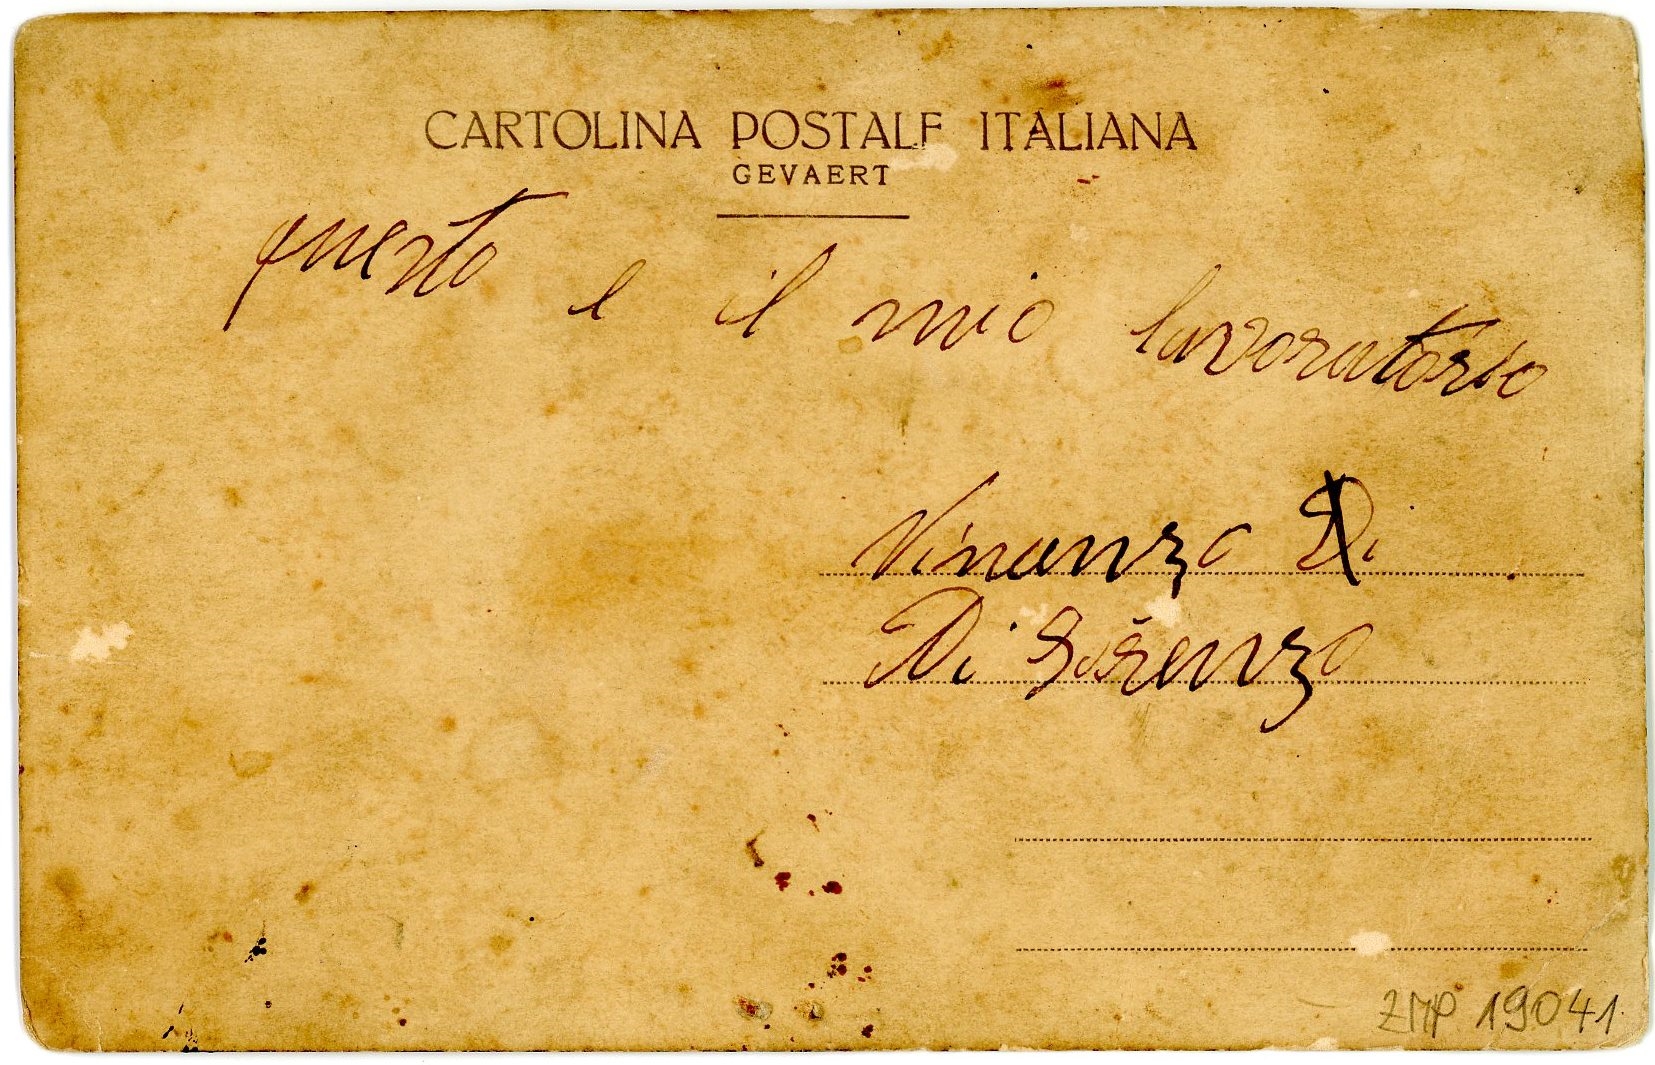 CARTOLINA POSTALE ITALIANA
GEVAERT
questo e il mio lavoratorio
Vinanzo Di
Di Lorenzo
ZMP 19041